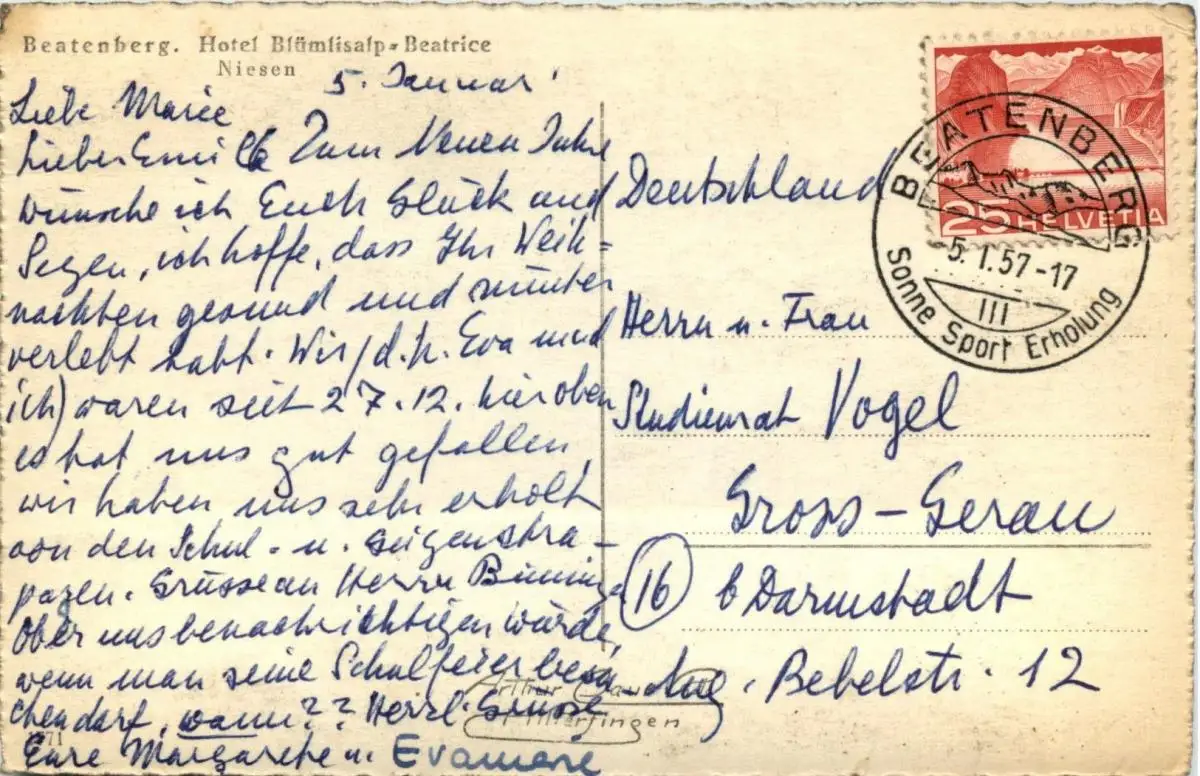 Beatenberg. Hotel Blümlisalp-Beatrice
Niesen
5. Januar
Liebe Marie
Lieber Emil Zum Neuen Jahre
wünsche ich Euch Glück und
Segen, ich hoffe, dass Ihr Weih=
nachten gesund und munter
verlebt habt. Wir (d.h. Eva und
ich) waren seit 27.12. hier oben
es hat uns gut gefallen,
wir haben uns sehr erholt
von den Schul- u. Geigenstra-
pazen. Grüsse an Herrn
Ob er uns benachrichtigen würde,
wenn man seine Schulfeier besu
chen darf, wann?? Herzl. Grüsse
Eure Margarethe u. Evamarie
Deutschland
Herrn u. Frau
Studienrat Vogel
Gross-Gerau
(16) b Darmstadt
Aug. Bebelstr. 12
25 HELVETIA
BEATENBERG
-5.1.57-17
III
Sonne Sport Erholung
Arthur